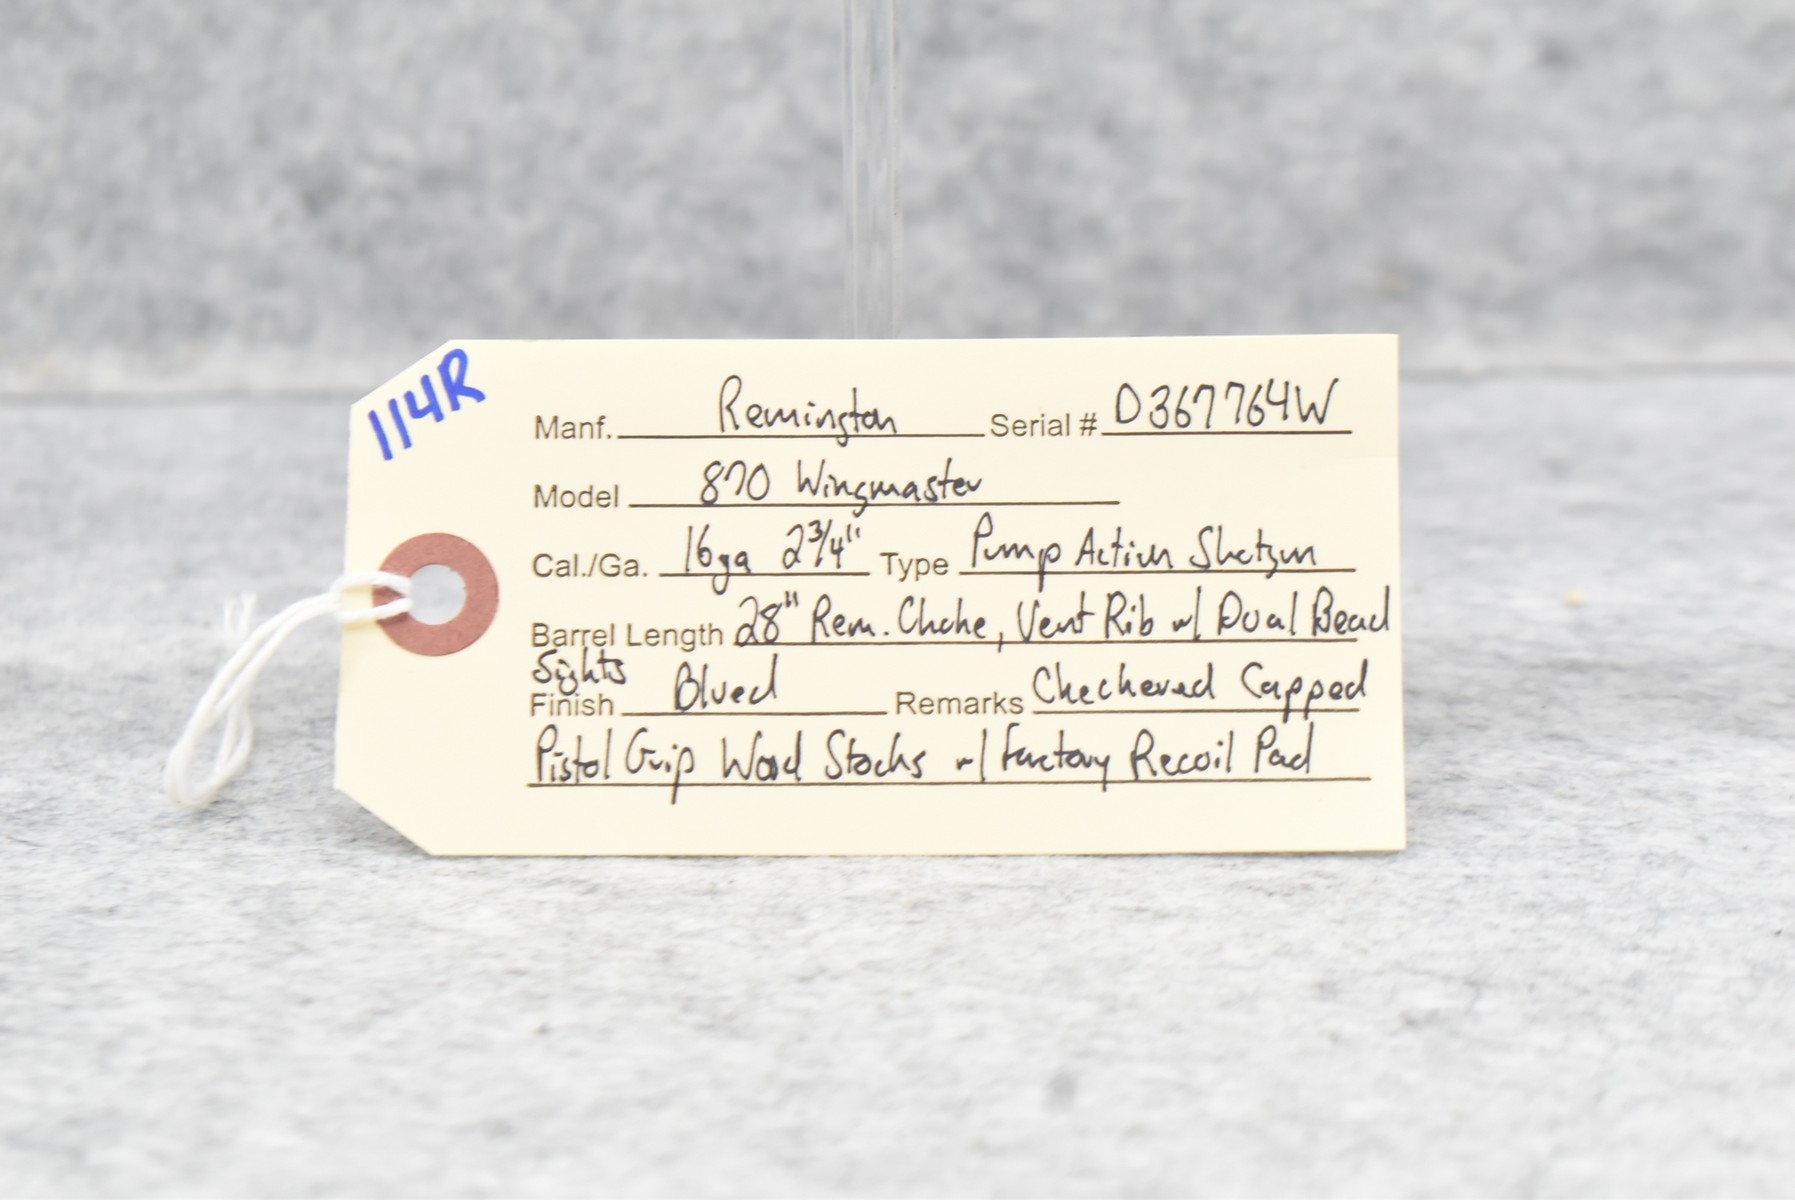 114R
Manf. Remington Serial # D367764W
Model 870 Wingmaster
Cal./Ga. 16ga 2 3/4" Type Pump Action Shotgun
Barrel Length 28" Rem. Choke, Vent Rib w/ Dual Bead
Sights
Finish Blued Remarks Checkered Capped
Pistol Grip Wood Stocks w/ Factory Recoil Pad